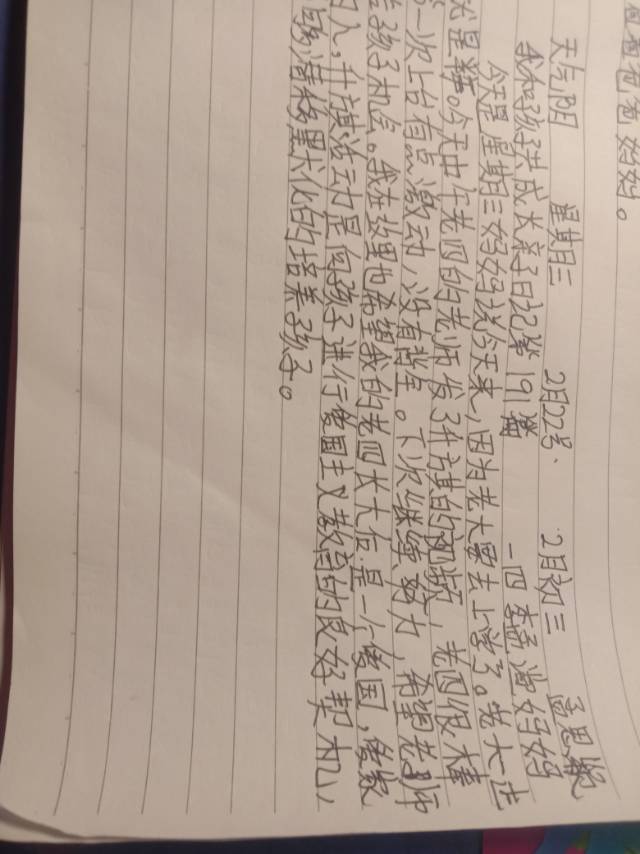 爸爸 妈妈。
天气阴 星期三 2月22号. 2月初三 孟思
我和孩子共成长亲子日记第191篇 一四 李孟 妈妈
今天是星期三妈妈说今天来,因为老大要去上学了。老大也
是 。今天中午老四的老师发了升旗的视频,老四很棒
一次上台有点激动,没有背全。下次继续努力,希望老师
给孩子机会。我在这里也希望我的老四长大后是一个爱国,爱家
的人。升旗活动是向孩子进行爱国主义教育的良好契机,
潜移默化的培养孩子。